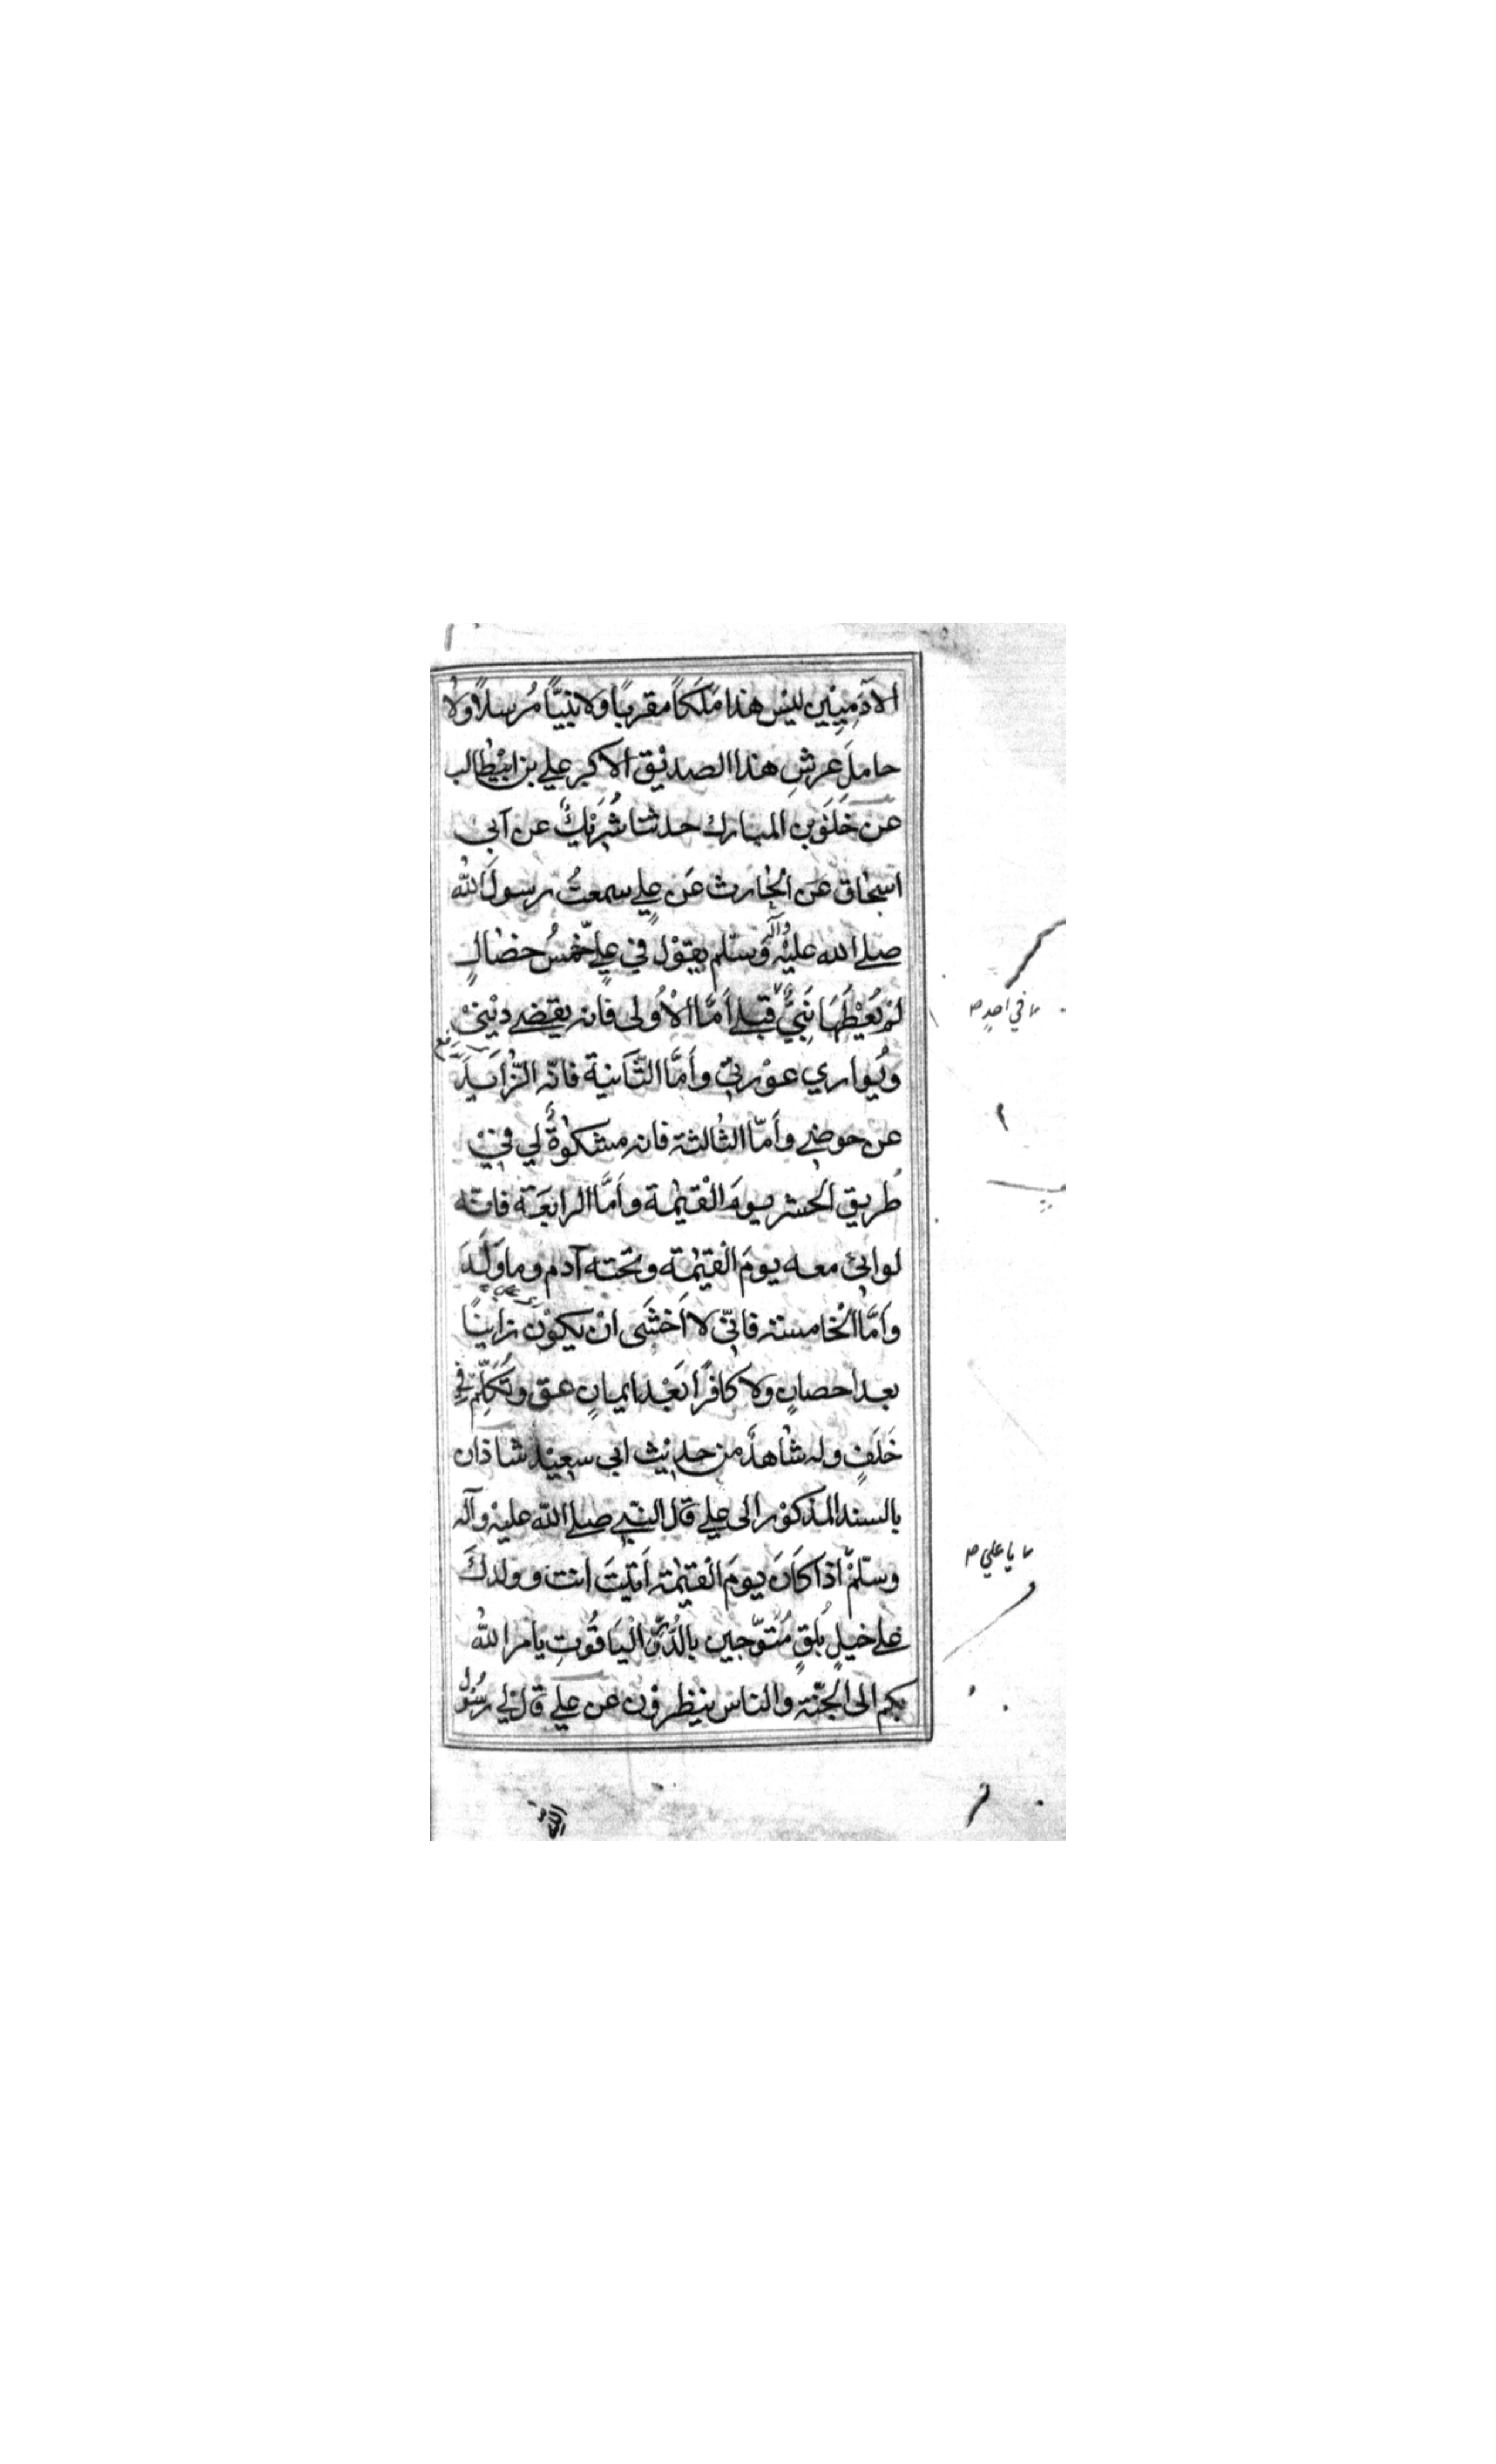 الآدَمِيّين ليس هذا مَلَكاً مقربًا ولا نبيًّا مُرسلاً ولا
حاملَ عرشِ هذا الصديق الاكبر علي بن ابيطالب
عن خَلَف بن المبارك حدثنا شُرَيْكٌ عن ابى
اسحاق عن الحارث عَن علي سمعتُ رسول الله
صلى الله عليه وآله وسلّم يقول في عليٍّ خمسُ خصالٍ
لمْ يُعْطَهَا نَبِيٌّ قبلي أمّا الاُولى فانه يقضي دينىْ
ويُواري عورتي وأمّا الثّانية فانّه الزايد
عن حوضي وأمّا الثالثة فانه مشكوةٌ لي في
طريق الحشر يومَ القيٰمة وأمَّا الرابعَة فانّه
لوائى معه يومَ القيٰمة وتحته آدم وما وَلَدَ
وأمَّا الخامسة فانّي لا أخشَى انْ يكوْن زانيًا
بعد احصانٍ ولا كافرًا بَعْد ايمانٍ عق وتَكَلَّمَ في
خَلَفٍ وله شاهدٌ من حديث ابي سعيد شاذان
بالسند المذكور الى علي قال النبي صلى الله عليه وآله
وسلّم اذا كَانَ يومَ القيٰمة اتيتَ انت وولدكَ
على خيلٍ بُلقٍ مُتوّجين بالدُّرّ والياقُوتِ يامر الله
بكم الى الجنّة والناس ينظرون عن علي قال لي رسُول
الله
في احدٍ
يا علي